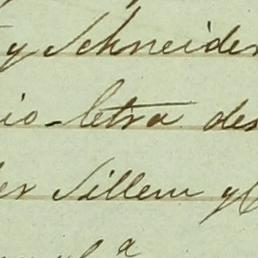 y Schneider
io-letra des
er Sillem y C
a